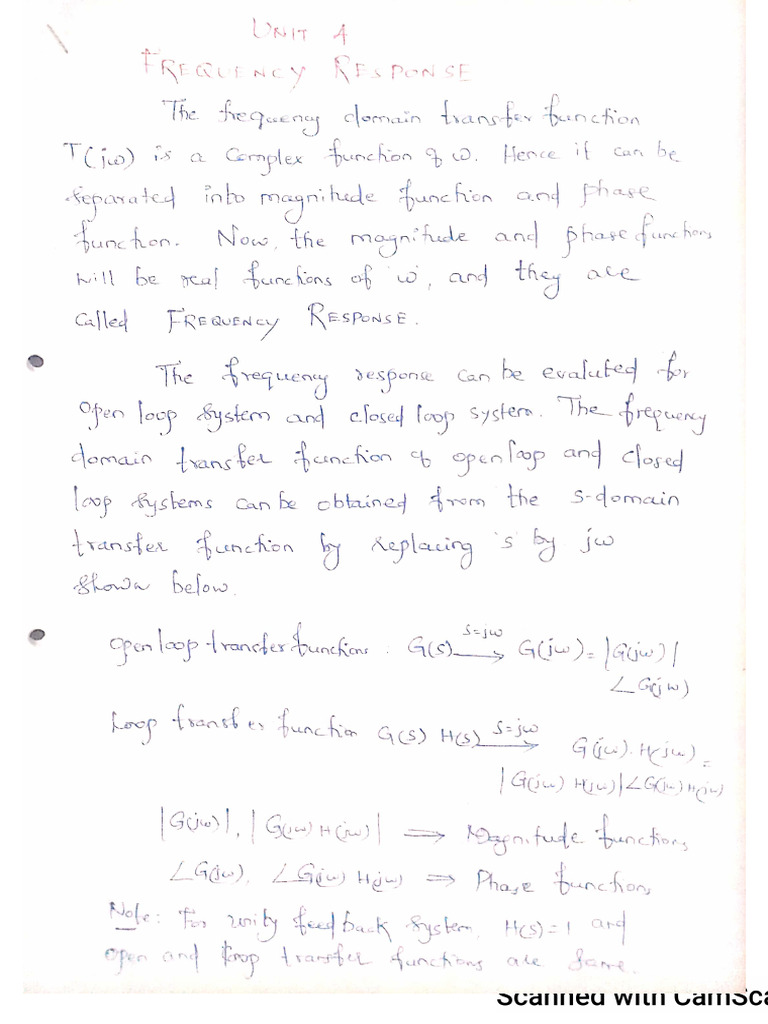 UNIT 4
FREQUENCY RESPONSE
The frequency domain transfer function
T(jω) is a Complex function of ω. Hence it can be
separated into magnitude function and phase
function. Now, the magnitude and phase functions
will be real functions of 'ω', and they are
called FREQUENCY RESPONSE.
The frequency response can be evaluted for
Open loop system and closed loop system. The frequency
domain transfer function of open loop and closed
loop systems can be obtained from the s-domain
transfer function by replacing 's' by jω
shown below.
Open loop transfer function. G(s) s=jω → G(jω) = |G(jω)|
∠G(jω)
Loop transfer function G(s) H(s) s=jω → G(jω). H(jω) =
|G(jω) H(jω)| ∠G(jω) H(jω)
|G(jω)|, |G(jω) H(jω)| ⇒ Magnitude functions
∠G(jω), ∠G(jω) H(jω) ⇒ Phase functions
Note: For unity feedback system, H(s)=1 and
open and loop transfer functions are same.
Scanned with CamSca